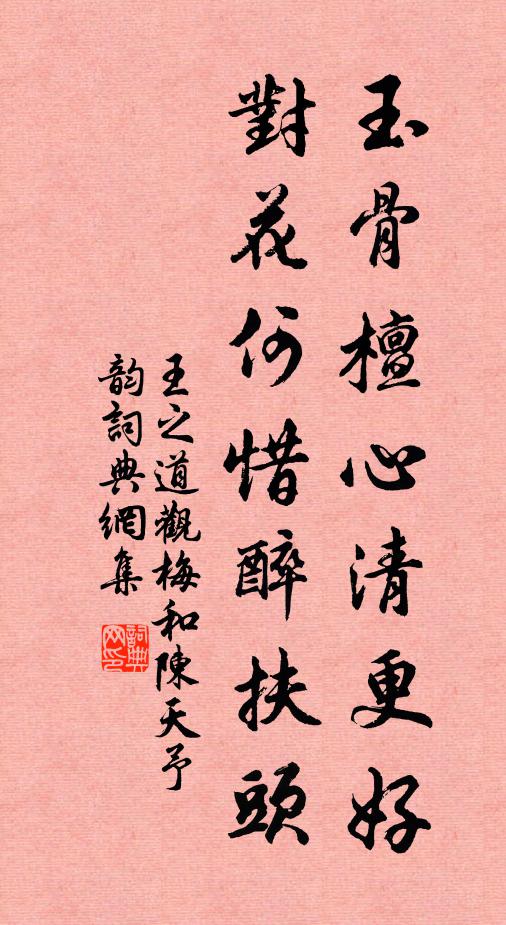 玉骨檀心清更好
對花何惜醉扶頭
王之道觀梅和陳天予
韵詞典網集
詞典网印